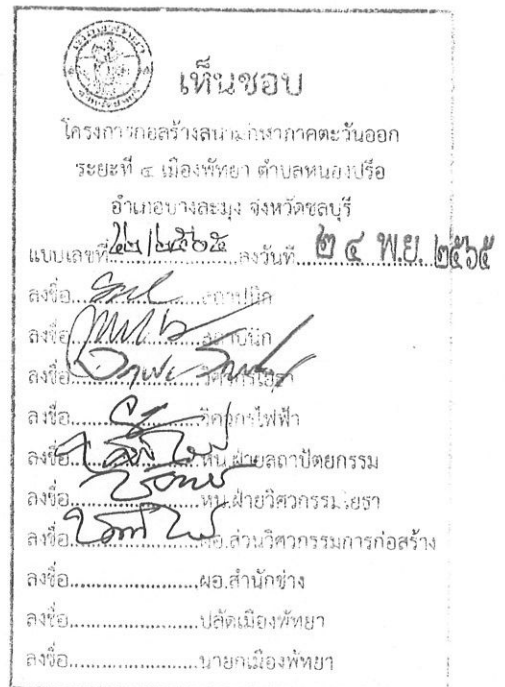 เห็นชอบ
โครงการก่อสร้างสนามกีฬาภาคตะวันออก
ระยะที่ ๔ เมืองพัทยา ตำบลหนองปรือ
อำเภอบางละมุง จังหวัดชลบุรี
แบบเลขที่ ๒๒/๒๕๖๕ ลงวันที่ ๒๔ พ.ย. ๒๕๖๕
ลงชื่อ..................สถาปนิก
ลงชื่อ..................สถาปนิก
ลงชื่อ..................วิศวกรโยธา
ลงชื่อ..................วิศวกรไฟฟ้า
ลงชื่อ..................หน.ฝ่ายสถาปัตยกรรม
ลงชื่อ..................หน.ฝ่ายวิศวกรรมโยธา
ลงชื่อ..................ผอ.ส่วนวิศวกรรมการก่อสร้าง
ลงชื่อ........................ผอ.สำนักช่าง
ลงชื่อ........................ปลัดเมืองพัทยา
ลงชื่อ........................นายกเมืองพัทยา